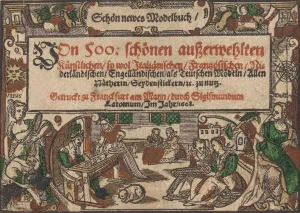 Schön newes Modelbuch /
Von 500. schönen außerwehlten
Künstlichen / so wol Italiänischen / Frantzösischen / Ni-
derländischen / Engelländischen / als Teutschen Mödeln / Allen
Nätherin / Seydenstickern / ꝛc. zu nutz.
Getruckt zu Franckfurt am Mayn / durch Sigismundum
Latomum / Im Jahr /